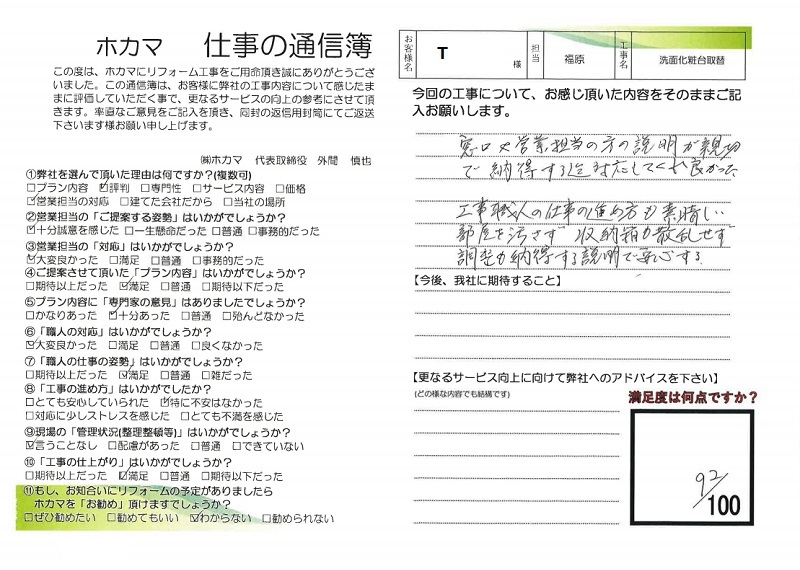 ホカマ 仕事の通信簿
この度は、ホカマにリフォーム工事をご用命頂き誠にありがとうござ
いました。この通信簿は、お客様に弊社の工事内容について感じたま
まに評価していただく事で、更なるサービスの向上の参考にさせて頂
きます。率直なご意見をご記入を頂き、同封の返信用封筒にてご返送
下さいます様お願い申し上げます。
㈱ホカマ 代表取締役 外間 慎也
①弊社を選んで頂いた理由は何ですか?(複数可)
□プラン内容 ☑評判 □専門性 □サービス内容 □価格
☑営業担当の対応 □建てた会社だから □当社の場所
②営業担当の「ご提案する姿勢」はいかがでしょうか?
☑十分誠意を感じた □一生懸命だった □普通 □事務的だった
③営業担当の「対応」はいかがでしょうか?
☑大変良かった □満足 □普通 □事務的だった
④ご提案させて頂いた「プラン内容」はいかがでしょうか?
□期待以上だった ☑満足 □普通 □期待以下だった
⑤プラン内容に「専門家の意見」はありましたでしょうか?
□かなりあった ☑十分あった □普通 □殆んどなかった
⑥「職人の対応」はいかがでしょうか?
☑大変良かった □満足 □普通 □良くなかった
⑦「職人の仕事の姿勢」はいかがでしょうか?
□期待以上だった ☑満足 □普通 □雑だった
⑧「工事の進め方」はいかがでしたか?
□とても安心していられた ☑特に不安はなかった
□対応に少しストレスを感じた □とても不満を感じた
⑨現場の「管理状況(整理整頓等)」はいかがでしょうか?
☑言うことなし □配慮があった □普通 □できていない
⑩「工事の仕上がり」はいかがでしょうか?
□期待以上だった ☑満足 □普通 □期待以下だった
⑪もし、お知合いにリフォームの予定がありましたら
ホカマを「お勧め」頂けますでしょうか?
□ぜひ勧めたい □勧めてもいい ☑わからない □勧められない
お客様名 T 様 担当 福原 工事名 洗面化粧台取替
今回の工事について、お感じ頂いた内容をそのままご記
入お願いします。
窓口や営業担当の方の説明が親切
で納得する迄対応してくれ良かった
工事職人の仕事の進め方も素晴しい
部屋を汚さず 収納箱も散乱せず
調整も納得する説明で安心する。
【今後、我社に期待すること】
【更なるサービス向上に向けて弊社へのアドバイスを下さい】
(どの様な内容でも結構です)
満足度は何点ですか?
92/100